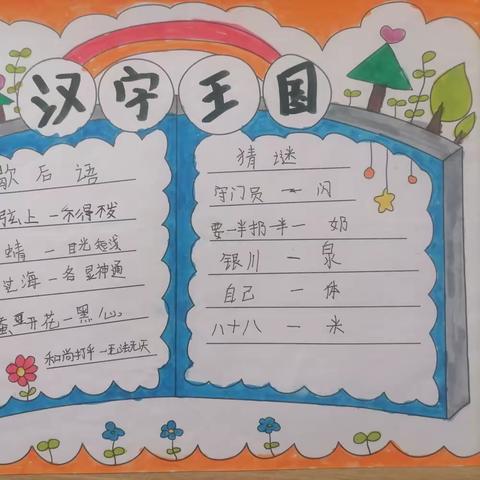 汉字王国
歇后语
弦上一不得不发
蜻一目光短浅
过海一各显神通
开花一黑心
和尚打伞一无法无天
猜谜
守门员一闪
要一半扔一半一奶
银川一泉
自己一体
八十八一米